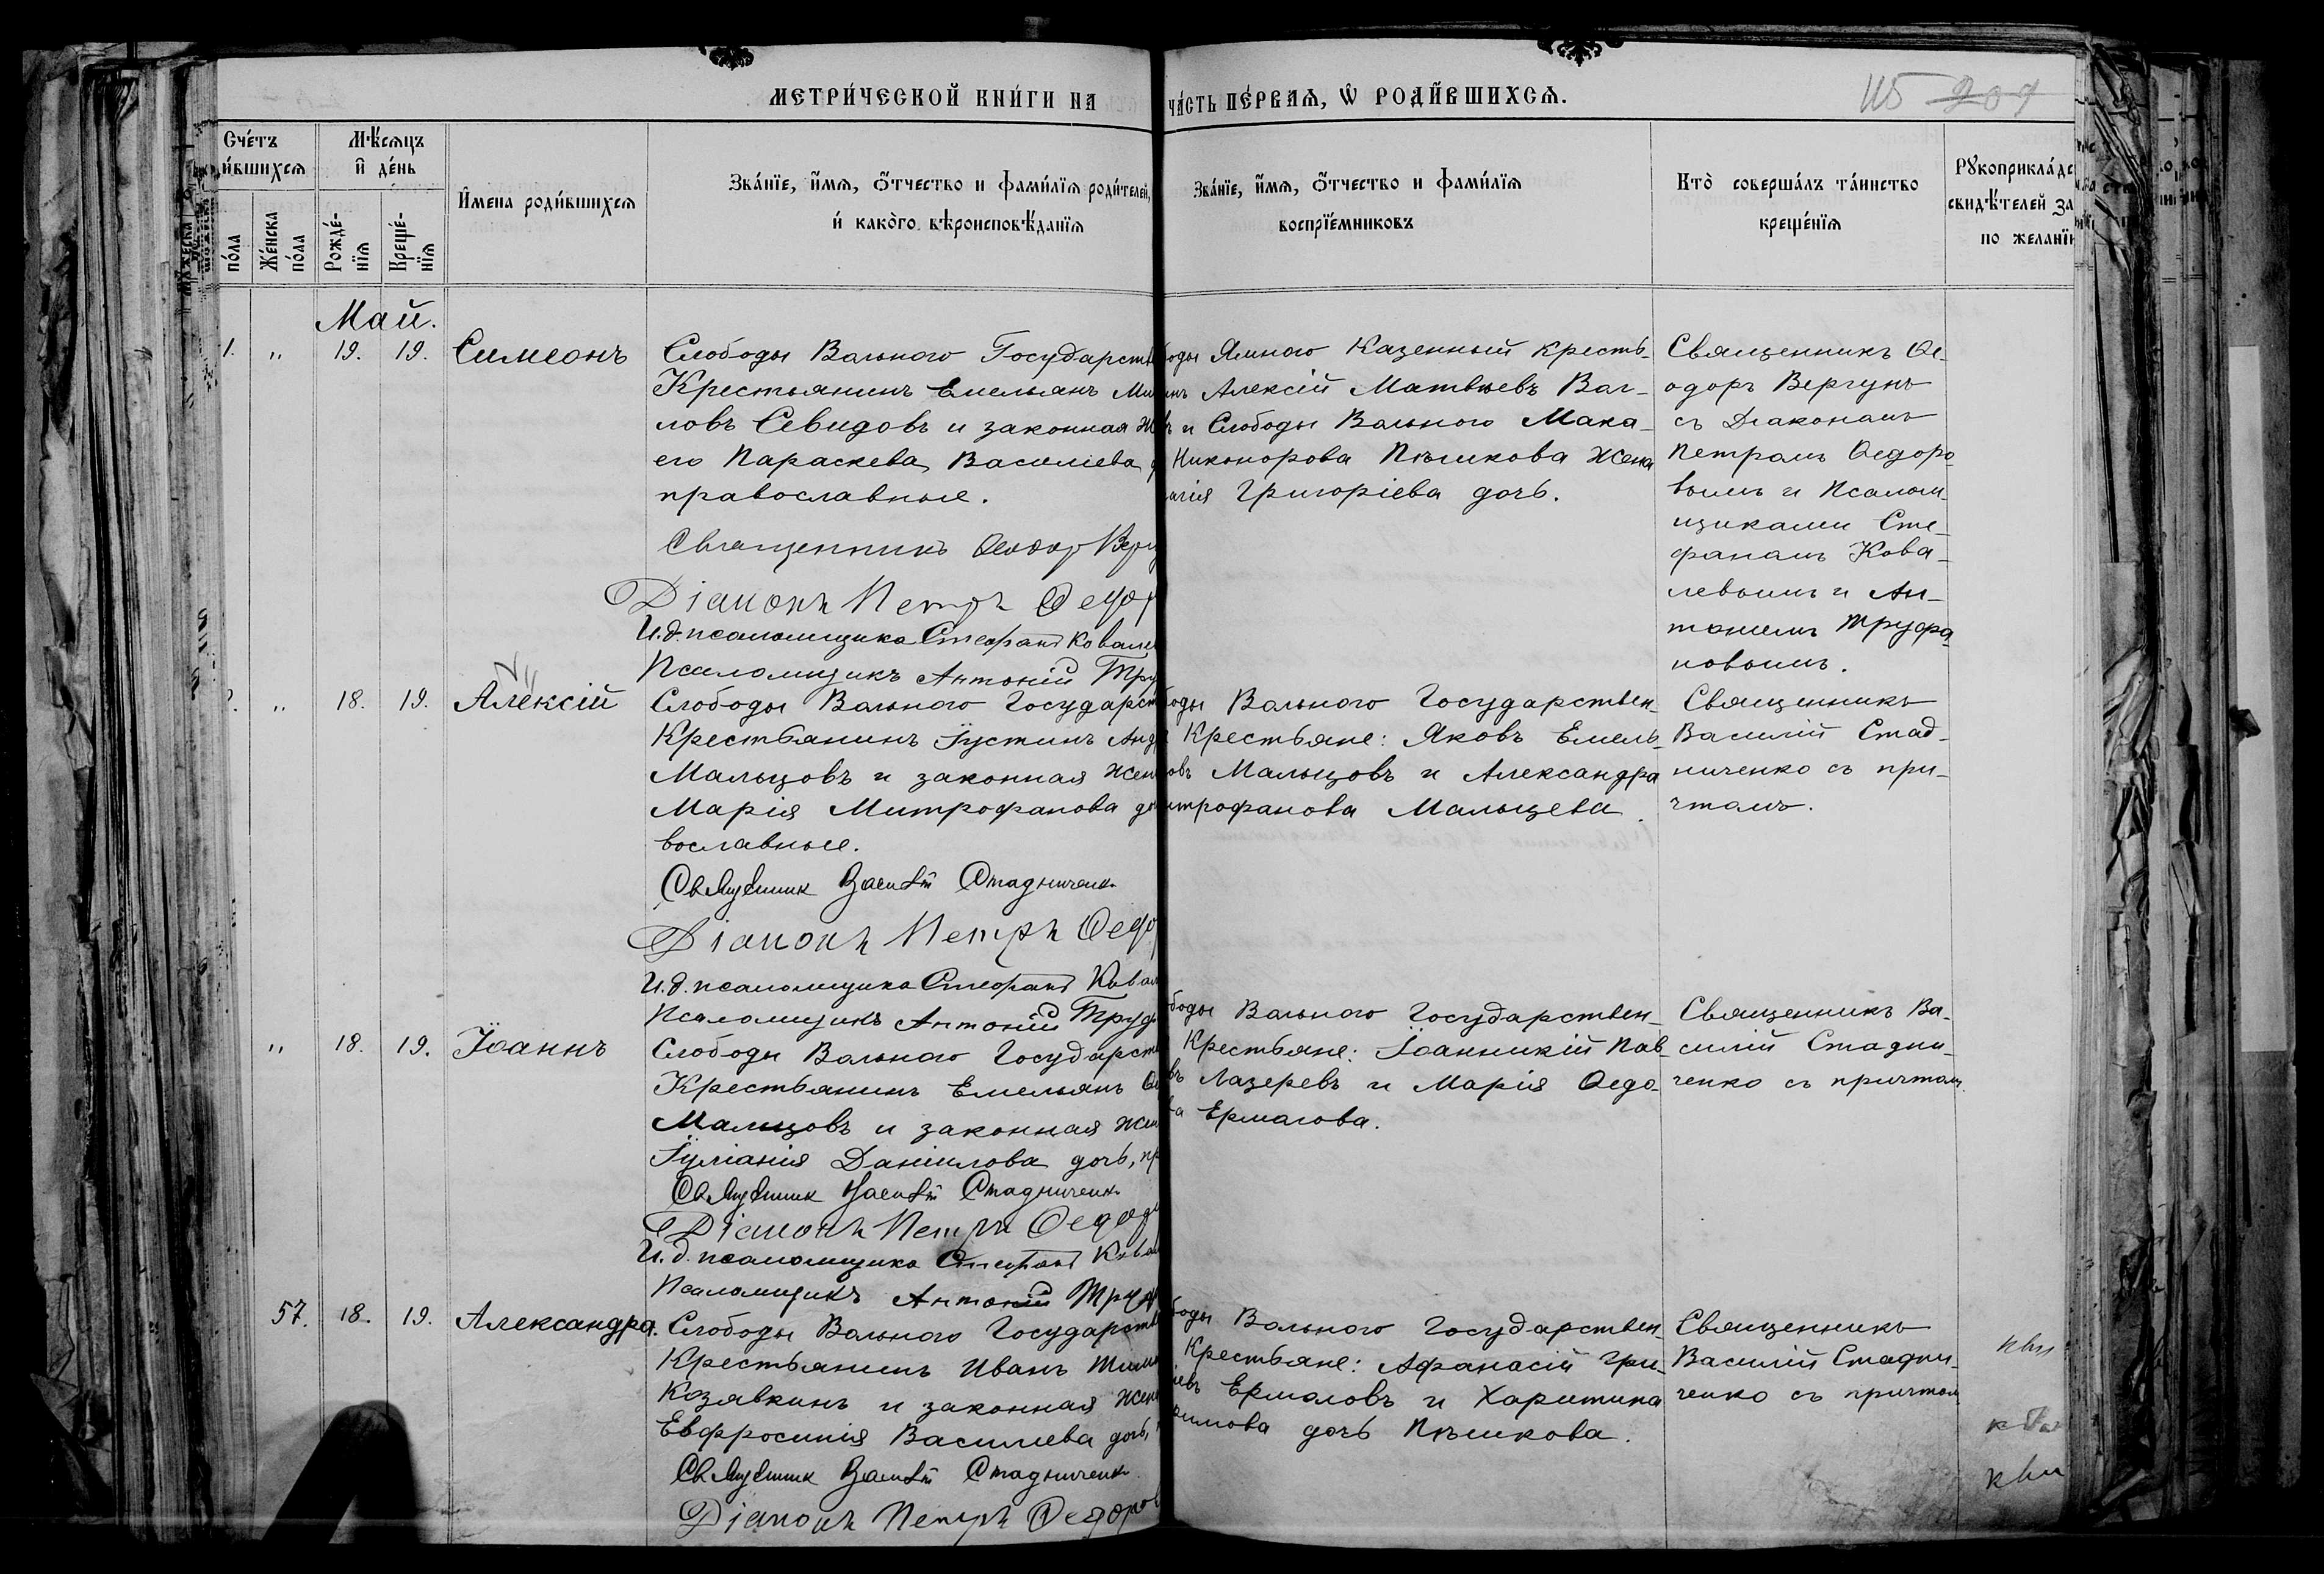 МЕТРИ́ЧЕСКОЙ КНИ́ГИ НА
ЧА́СТЬ ПЕ́РВАЯ, Ѡ РОДИ́ВШИХСЯ.
115 207
Сче́тъ
и́вшихся
Мѣ́сяцъ
и҆ де́нь
по́ла
Же́нска
по́ла
Рожде́-
нїя
Креще́-
нїя
И҆мена роди́вшихся
Зва́нїе, и҆́мя, ѻ҆́тчество и фами́лїя роди́телей,
и҆ како́гѡ вѣроисповѣ́данїя
Зва́нїе, и҆́мя, ѻ҆́тчество и фами́лїя
воспрїе́мниковъ
Кто̀ соверша́лъ та́инство
креще́нїя
Рꙋкоприкла́дс
свидѣ́телей за
по желанїи
Май.
1. „ 19. 19. Симеонъ
Слободы Вольного Государств
Крестьянинъ Емельянъ Ми
ловъ Севидовъ и законная ж
его Параскева Василіева
православные.
Священникъ Ѳеодор Верг
Діаконъ Петръ Ѳедор
И.д. псаломщика Стефанъ Ковале
Псаломщикъ Антоній Тру
боды Ямного Казенный кресть-
инъ Алексій Матвѣевъ Ваг-
ъ и Слободы Вольного Мака-
Никонорова Пѣшкова жена
агія Григоріева дочь.
Священникъ Ѳе-
одоръ Вергунъ
съ Діакономъ
Петромъ Ѳедоро-
вымъ и Псалом-
щиками Сте-
фаномъ Кова-
левымъ и Ан-
тоніемъ Труфа-
новымъ.
„ 18. 19. Алексій
Слободы Вольного Государст
Крестьянинъ Іустинъ Анд
Мальцовъ и законная жен
Марія Митрофанова до
вославные.
Священник Василій Стадниченко
Діаконъ Петръ Ѳедо
И.д. псаломщика Стефанъ Ковал
Псаломщикъ Антоній Труф
боды Вольного Государствен-
Крестьяне: Яковъ Емель-
овъ Мальцовъ и Александра
итрофанова Мальцева.
Священникъ
Василій Стад-
ниченко съ при-
чтомъ.
„ 18. 19. Іоаннъ
Слободы Вольного Государст
Крестьянинъ Емельянъ Ѳе
Мальцовъ и законная жен
Іуліанія Даніилова дочь, пр
Священник Василій Стадниченко
Діаконъ Петръ Ѳедор
И.д. псаломщика Стефанъ Ковал
Псаломщикъ Антоній Труф
боды Вольного Государствен-
Крестьяне: Іоанникій Пав-
въ Лазеревъ и Марія Ѳедо-
ва Ермагова.
Священникъ Ва-
силій Стадни-
ченко съ причтом
57. 18. 19. Александра.
Слободы Вольного Государств
Крестьянинъ Иванъ Тим
Козявкинъ и законная жен
Евфросинія Василиева дочь,
Священник Василій Стадниченко
Діаконъ Петръ Ѳедоров
боды Вольного Государствен-
Крестьяне: Афанасій Гри-
іевъ Ермаловъ и Харитина
имова дочь Пѣшкова.
Священникъ
Василій Стадни-
ченко съ причтом